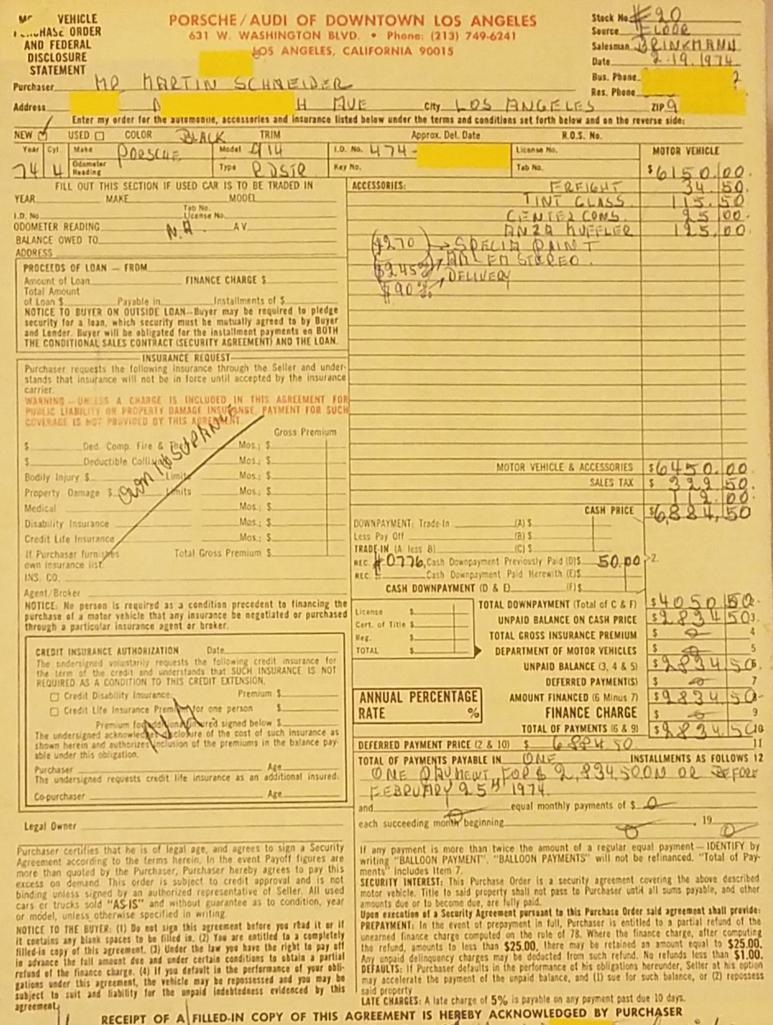 VEHICLE
PURCHASE ORDER
AND FEDERAL
DISCLOSURE
STATEMENT
PORSCHE/AUDI OF DOWNTOWN LOS ANGELES
631 W. WASHINGTON BLVD. • Phone: (213) 749-6241
LOS ANGELES, CALIFORNIA 90015
Stock No. #20
Source FLOOR
Salesman BRINKMANN
Date 2-19-1974
Bus. Phone 2
Res. Phone
Purchaser MR MARTIN SCHNEIDER
Address H AVE City LOS ANGELES ZIP 9
Enter my order for the automobile, accessories and insurance listed below under the terms and conditions set forth below and on the reverse side:
NEW USED COLOR BLACK TRIM Approx. Del. Date R.O.S. No.
Year 74 Cyl. 4 Make PORSCHE Model 914 I.D. No. 474- License No. MOTOR VEHICLE
Odometer Reading Type RDSTR Key No. Tab No. $6150.00
FILL OUT THIS SECTION IF USED CAR IS TO BE TRADED IN
YEAR MAKE MODEL
Tab No.
I.D. No. License No.
ODOMETER READING N.A. AV
BALANCE OWED TO
ADDRESS
ACCESSORIES: FREIGHT 34.50
TINT GLASS 115.50
CENTER CONS. 25.00
ANZA MUFFLER 125.00
$270 SPECIAL PAINT
$245 STEREO.
$90 DELIVERY
PROCEEDS OF LOAN — FROM
Amount of Loan FINANCE CHARGE $
Total Amount
of Loan $ Payable in Installments of $
NOTICE TO BUYER ON OUTSIDE LOAN—Buyer may be required to pledge
security for a loan, which security must be mutually agreed to by Buyer
and Lender. Buyer will be obligated for the installment payments on BOTH
THE CONDITIONAL SALES CONTRACT (SECURITY AGREEMENT) AND THE LOAN.
INSURANCE REQUEST
Purchaser requests the following insurance through the Seller and under-
stands that insurance will not be in force until accepted by the insurance
carrier.
WARNING — UNLESS A CHARGE IS INCLUDED IN THIS AGREEMENT FOR
PUBLIC LIABILITY OR PROPERTY DAMAGE INSURANCE, PAYMENT FOR SUCH
COVERAGE IS NOT PROVIDED BY THIS AGREEMENT.
Gross Premium
$ Ded. Comp. Fire & Mos.; $
$ Deductible Collision Mos.; $
Bodily Injury $ Limits Mos.; $
Property Damage $ Limits Mos.; $
Medical Mos.; $
Disability Insurance Mos.; $
Credit Life Insurance Mos.; $
OWN INSURANCE
If Purchaser furnishes Total Gross Premium $
own insurance list.
INS. CO.
Agent/Broker
NOTICE: No person is required as a condition precedent to financing the
purchase of a motor vehicle that any insurance be negotiated or purchased
through a particular insurance agent or broker.
MOTOR VEHICLE & ACCESSORIES $6450.00
SALES TAX $ 322.50
112.00
CASH PRICE $6,884.50
DOWNPAYMENT: Trade-In (A) $
Less Pay Off (B) $
TRADE-IN (A less B) (C) $
REC. #0776 Cash Downpayment Previously Paid (D)$ 50.00 2.
REC. Cash Downpayment Paid Herewith (E)$
CASH DOWNPAYMENT (D & E) (F)$
License $
Cert. of Title $
Reg. $
TOTAL $
TOTAL DOWNPAYMENT (Total of C & F) $4050.50
UNPAID BALANCE ON CASH PRICE $2834.50 3
TOTAL GROSS INSURANCE PREMIUM $ 0 4
DEPARTMENT OF MOTOR VEHICLES $ 0 5
UNPAID BALANCE (3, 4 & 5) $2834.50 6
DEFERRED PAYMENT(S) $ 0 7
AMOUNT FINANCED (6 Minus 7) $2834.50 8
FINANCE CHARGE $ 0 9
TOTAL OF PAYMENTS (6 & 9) $2834.50 10
ANNUAL PERCENTAGE
RATE %
DEFERRED PAYMENT PRICE (2 & 10) $ 6884.50 11
TOTAL OF PAYMENTS PAYABLE IN ONE INSTALLMENTS AS FOLLOWS 12
ONE PAYMENT FOR $2,834.50 ON OR BEFORE
FEBRUARY 25TH 1974.
and 0 equal monthly payments of $ 0
each succeeding month beginning 0 , 19 0
CREDIT INSURANCE AUTHORIZATION Date
The undersigned voluntarily requests the following credit insurance for
the term of the credit and understands that SUCH INSURANCE IS NOT
REQUIRED AS A CONDITION TO THIS CREDIT EXTENSION.
Credit Disability Insurance Premium $
Credit Life Insurance Premium for one person $
Premium for insured signed below $
The undersigned acknowledges disclosure of the cost of such insurance as
shown herein and authorizes inclusion of the premiums in the balance pay-
able under this obligation.
Purchaser Age
The undersigned requests credit life insurance as an additional insured.
Co-purchaser Age
Legal Owner
Purchaser certifies that he is of legal age, and agrees to sign a Security
Agreement according to the terms herein. In the event Payoff figures are
more than quoted by the Purchaser, Purchaser hereby agrees to pay this
excess on demand. This order is subject to credit approval and is not
binding unless signed by an authorized representative of Seller. All used
cars or trucks sold "AS-IS" and without guarantee as to condition, year
or model, unless otherwise specified in writing.
NOTICE TO THE BUYER: (1) Do not sign this agreement before you read it or if
it contains any blank spaces to be filled in. (2) You are entitled to a completely
filled-in copy of this agreement. (3) Under the law you have the right to pay off
in advance the full amount due and under certain conditions to obtain a partial
refund of the finance charge. (4) If you default in the performance of your obli-
gations under this agreement, the vehicle may be repossessed and you may be
subject to suit and liability for the unpaid indebtedness evidenced by this
agreement.
If any payment is more than twice the amount of a regular equal payment — IDENTIFY by
writing "BALLOON PAYMENT". "BALLOON PAYMENTS" will not be refinanced. "Total of Pay-
ments" includes Item 7.
SECURITY INTEREST: This Purchase Order is a security agreement covering the above described
motor vehicle. Title to said property shall not pass to Purchaser until all sums payable, and other
amounts due or to become due, are fully paid.
Upon execution of a Security Agreement pursuant to this Purchase Order said agreement shall provide:
PREPAYMENT: In the event of prepayment in full, Purchaser is entitled to a partial refund of the
unearned finance charge computed on the rule of 78. Where the finance charge, after computing
the refund, amounts to less than $25.00, there may be retained an amount equal to $25.00.
Any unpaid delinquency charges may be deducted from such refund. No refunds less than $1.00.
DEFAULTS: If Purchaser defaults in the performance of his obligations hereunder, Seller at his option
may accelerate the payment of the unpaid balance, and (1) sue for such balance, or (2) repossess
said property
LATE CHARGES: A late charge of 5% is payable on any payment past due 10 days.
RECEIPT OF A FILLED-IN COPY OF THIS AGREEMENT IS HEREBY ACKNOWLEDGED BY PURCHASER